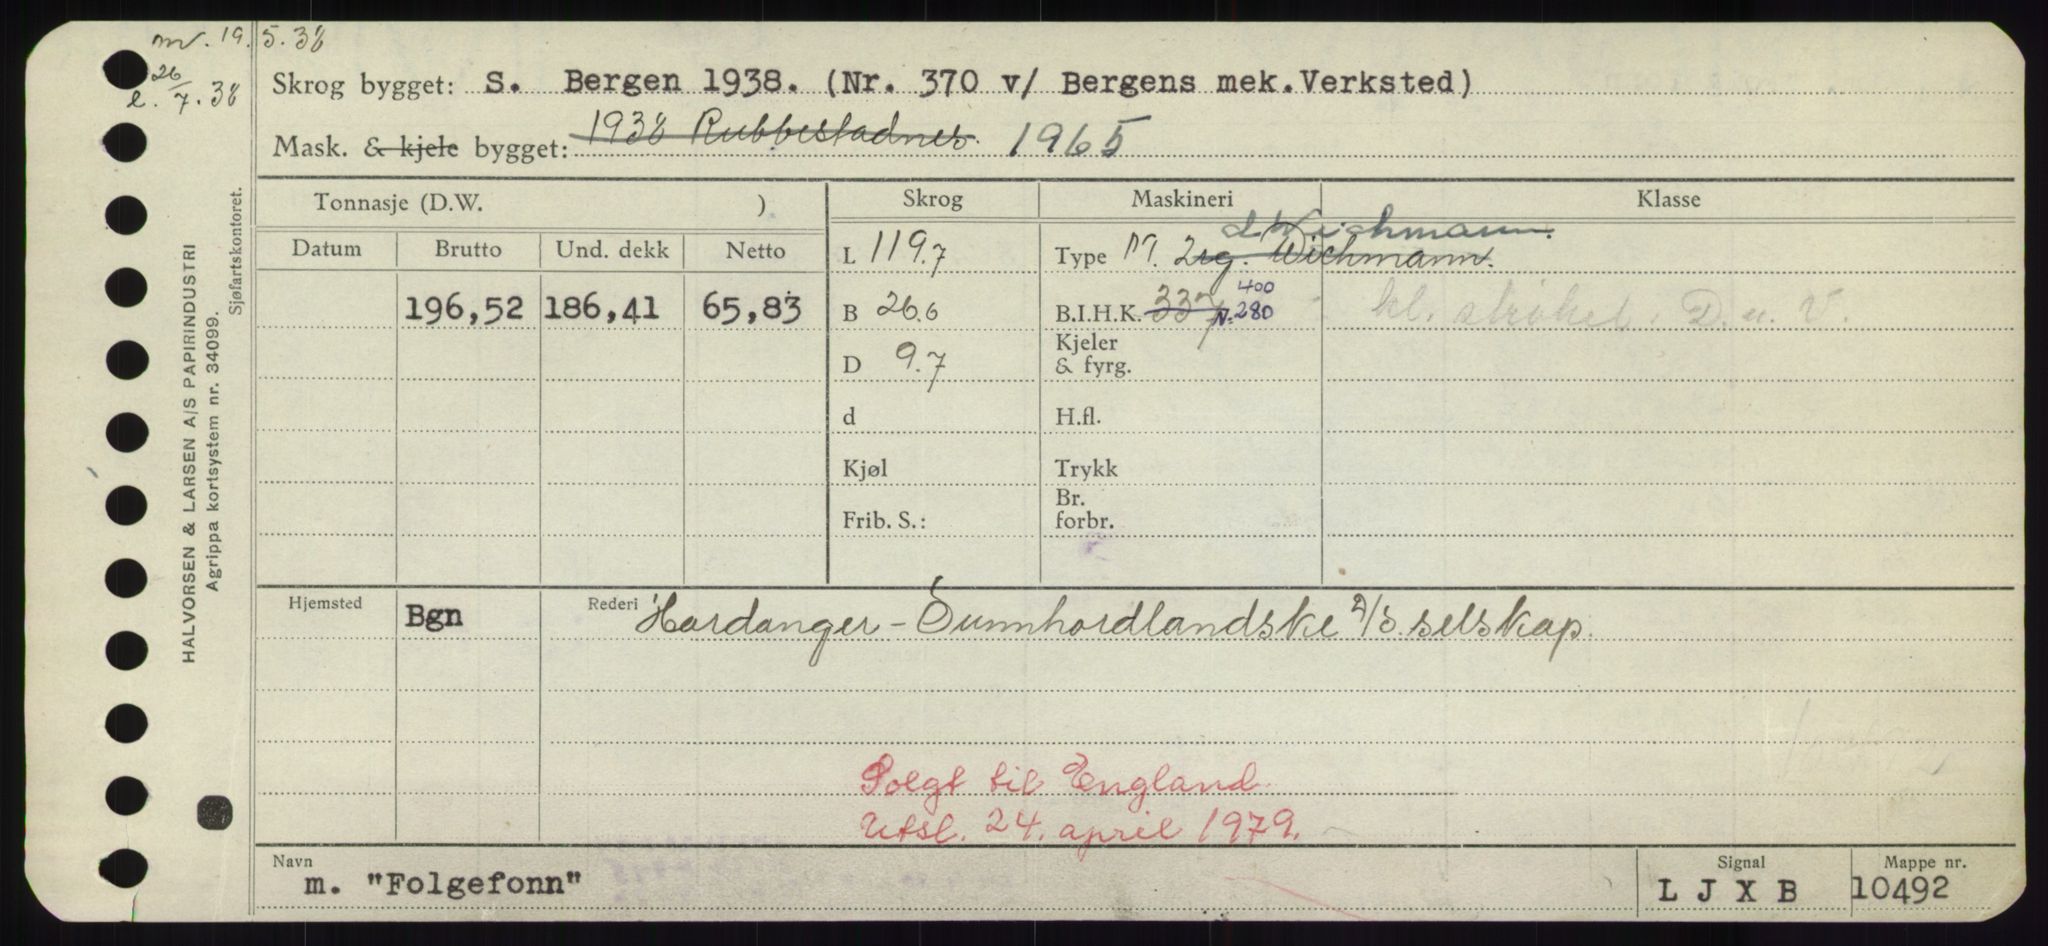 m. 19.5.38
e. 26/7.38
Skrog bygget: S. Bergen 1938. (Nr. 370 v/ Bergens mek.Verksted)
Mask. & kjele bygget: 1938 Rubbestadnes. 1965
Tonnasje (D.W. )
Skrog
Maskineri
Klasse
Datum
Brutto
Und. dekk
Netto
196,52
186,41
65,83
L 119.7
B 26.6
D 9.7
d
Kjøl
Frib. S.:
Wichmann.
Type M. Wichmann.
400
B.I.H.K. 337 N. 280
Kjeler
& fyrg.
H.fl.
Trykk
Br.
forbr.
kl. strøket. D. n. V.
Hjemsted
Bgn
Rederi Hardanger-Sunnhordlandske D/S.selskap.
Solgt til England.
Utsl. 24. april 1979.
Navn
m. "Folgefonn"
Signal
L J X B
Mappe nr.
10492
HALVORSEN & LARSEN A/S PAPIRINDUSTRI
Agrippa kortsystem nr. 34099.
Sjøfartskontoret.